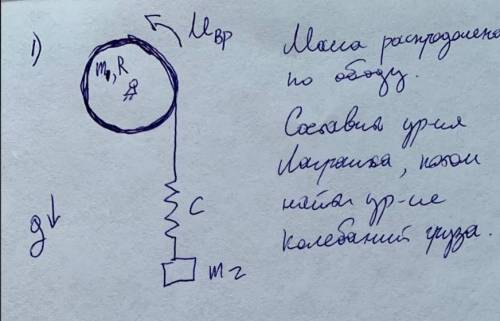 1)
M вр
m₁, R
g
c
m₂
Масса распределена
по ободу.
Составить ур-ия
Лагранжа, потом
найти ур-ие
колебаний груза.